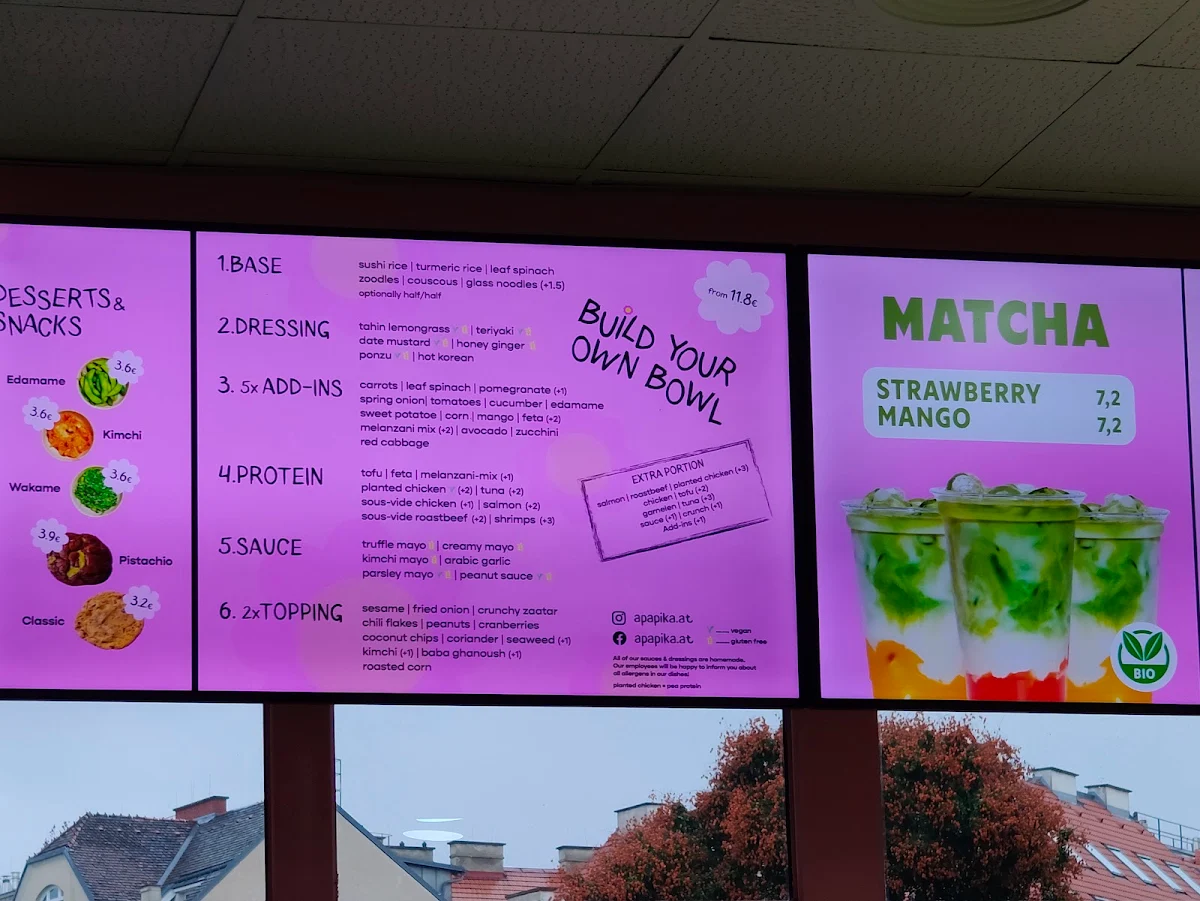 DESSERTS&
SNACKS
Edamame
3.6€
3.6€
Kimchi
Wakame
3.6€
3.9€
Pistachio
Classic
3.2€
1.BASE
sushi rice | turmeric rice | leaf spinach
zoodles | couscous | glass noodles (+1.5)
optionally half/half
2.DRESSING
tahin lemongrass | teriyaki
date mustard | honey ginger
ponzu | hot korean
3. 5x ADD-INS
carrots | leaf spinach | pomegranate (+1)
spring onion| tomatoes | cucumber | edamame
sweet potatoe | corn | mango | feta (+2)
melanzani mix (+2) | avocado | zucchini
red cabbage
4.PROTEIN
tofu | feta | melanzani-mix (+1)
planted chicken (+2) | tuna (+2)
sous-vide chicken (+1) | salmon (+2)
sous-vide roastbeef (+2) | shrimps (+3)
5.SAUCE
truffle mayo | creamy mayo
kimchi mayo | arabic garlic
parsley mayo | peanut sauce
6. 2xTOPPING
sesame | fried onion | crunchy zaatar
chili flakes | peanuts | cranberries
coconut chips | coriander | seaweed (+1)
kimchi (+1) | baba ghanoush (+1)
roasted corn
from 11.8€
BUILD YOUR
OWN BOWL
EXTRA PORTION
salmon | roastbeef | planted chicken (+3)
chicken | tofu (+2)
garnelen | tuna (+3)
sauce (+1) | crunch (+1)
Add-ins (+1)
apapika.at
apapika.at
vegan
gluten free
All of our sauces & dressings are homemade.
Our employees will be happy to inform you about
all allergens in our dishes!
planted chicken = pea protein
MATCHA
STRAWBERRY 7,2
MANGO 7,2
BIO